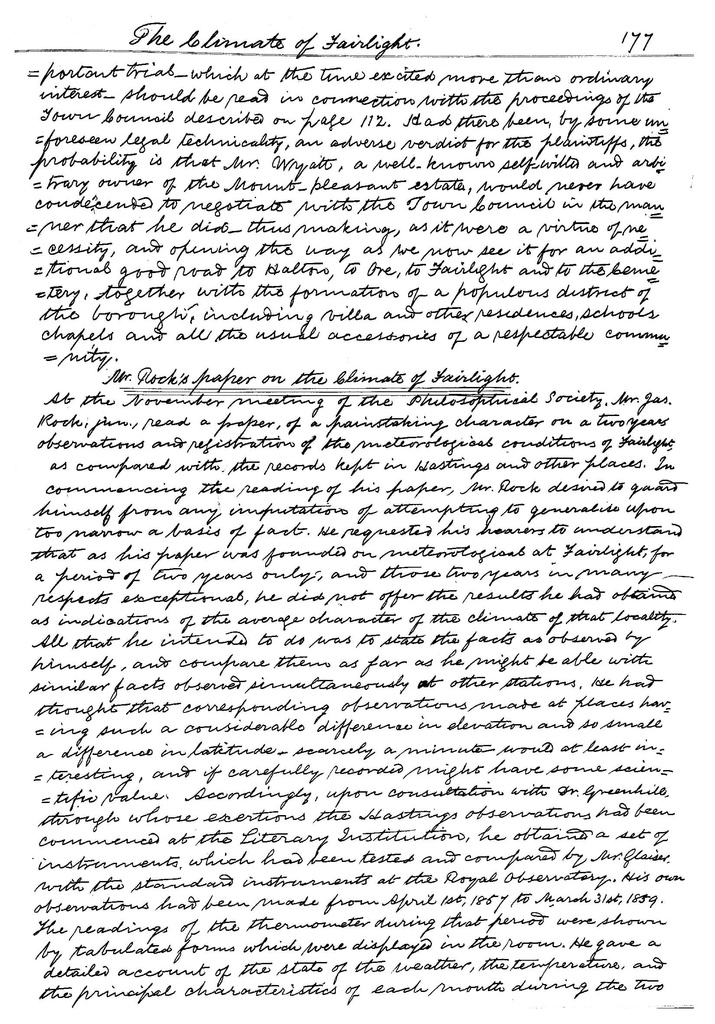 The Climate of Fairlight. 177
=portant trial – which at the time excited more than ordinary
interest – should be read in connection with the proceedings of the
Town Council described on page 112. Had there been, by some un=
=foreseen legal technicality, an adverse verdict for the plaintiffs, the
probability is that Mr. Wyatt, a well-known self-willed and arbi=
=trary owner of the Mount-pleasant estate, would never have
condecended to negotiate with the Town Council in the man=
=ner that he did – thus making, as it were a virtue of ne=
=cessity, and opening the way as we now see it for an addi=
=tional good road to Halton, to Ore, to Fairlight and to the Ceme=
=tery, together with the formation of a populous district of
the borough, including villa and other residences, schools
chapels and all the usual accessories of a respectable commu=
=nity.
Mr. Rock's paper on the Climate of Fairlight.
At the November meeting of the Philosophical Society, Mr. Jas.
Rock, jun., read a paper, of a painstaking character on a two years
observations and registration of the meteorological conditions of Fairlight
as compared with the records kept in Hastings and other places. In
commencing the reading of his paper, Mr. Rock desired to guard
himself from any imputation of attempting to generalise upon
too narrow a basis of fact. He requested his hearers to understand
that as his paper was founded on meteorological at Fairlight, for
a period of two years only, and those two years in many
respects exceptional, he did not offer the results he had obtained
as indications of the average character of the climate of that locality.
All that he intended to do was to state the facts as observed by
himself, and compare them as far as he might be able with
similar facts observed simultaneously at other stations. He had
thought that corresponding observations made at places hav=
=ing such a considerable difference in elevation and so small
a difference in latitude – scarcely a minute – would at least in=
=teresting, and if carefully recorded might have some scien=
=tific value. Accordingly, upon consultation with Dr. Greenhill,
through whose exertions the Hastings observations had been
commenced at the Literary Institution, he obtained a set of
instruments, which had been tested and compared by Mr. Glaiser,
with the standard instruments at the Royal Observatory. His own
observations had been made from April 1st, 1857 to March 31st, 1859.
The readings of the thermometer during that period were shown
by tabulated forms which were displayed in the room. He gave a
detailed account of the state of the weather, the temperature, and
the principal characteristics of each month during the two